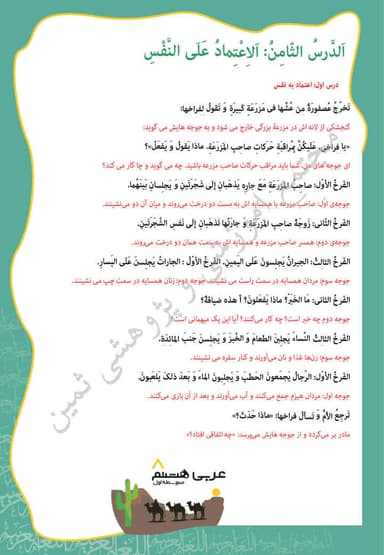 اَلدَّرسُ الثّامِنُ: اَلِاعْتِمادُ عَلَی النَّفْسِ
درس اول: اعتماد به نفس
تَخرُجُ عُصفورَةٌ مِن عُشِّها فی مَزرَعَةٍ کَبیرَةٍ وَ تَقولُ لِفِراخِها:
گنجشکی از لانه اش در مزرعهٔ بزرگی خارج می شود و به جوجه هایش می گوید:
«یا فِراخی، عَلَیکُنَّ مُراقَبَةَ حَرَکاتِ صاحِبِ المَزرَعَةِ. ماذا یَقولُ وَ یَفعَلُ»؟
ای جوجه های من، شما باید مراقب حرکات صاحب مزرعه باشید. چه می گوید و چا کار می کند؟
الفَرخُ الأوَّل: صاحِبُ المَزرَعَةِ مَعَ جارِهِ یَذهَبانِ إلَی شَجَرَتَینِ وَ یَجلِسانِ بَینَهُما.
جوجه‌ی اوّل: صاحب مزرعه با همسایه اش به سمت دو درخت می‌روند و میان آن دو می‌نشینند.
الفَرخُ الثّانی: زَوجَةُ صاحِبِ المَزرَعَةِ وَ جارَتُها تَذهَبانِ إلَی نَفسِ الشَّجَرَتَینِ.
جوجه‌ی دوم: همسر صاحب مزرعه و همسایه اش به سمت همان دو درخت می‌روند.
الفَرخُ الثّالث: الجیرانُ یَجلِسونَ عَلَی الیَمینِ. الفَرخُ الأوَّل : الجاراتُ یَجلِسنَ عَلَی الیَسارِ.
جوجه سوم: مردان همسایه در سمت راست می نشینند. جوجه دوم: زنان همسایه در سمت چپ می نشینند.
الفَرخُ الثانی: مَا الخَبَرُ؟ ماذا یَفعَلونَ؟ أ هذِهِ ضیافَةٌ؟
جوجه دوم چه خبر است؟ چه کار می‌کنند؟ آیا این یک میهمانی است؟
الفَرخُ الثالث: النِّساءُ یَجلِبنَ الطَعامَ وَ الخُبزَ وَ یَجلِسنَ جَنبَ المائِدَةِ.
جوجه سوم: زن‌ها غذا و نان می‌آورند و کنار سفره می نشینند.
الفَرخُ الأوَّل: الرِّجالُ یَجمَعونَ الحَطَبَ وَ یَجلِبونَ الماءَ وَ بَعدَ ذلکَ یَلعَبونَ.
جوجه اول: مردان هیزم جمع می‌کنند و آب می‌آورند و بعد از آن بازی می‌کنند.
تَرجِعُ الأمُّ وَ تَسألُ فِراخَها: «ماذا حَدَثَ»؟
مادر بر می‌گردد و از جوجه هایش می‌پرسد: «چه اتفاقی افتاد؟»
مجتمع آموزشی و پژوهشی ثمین
عربی هشتم
متوسطه اول